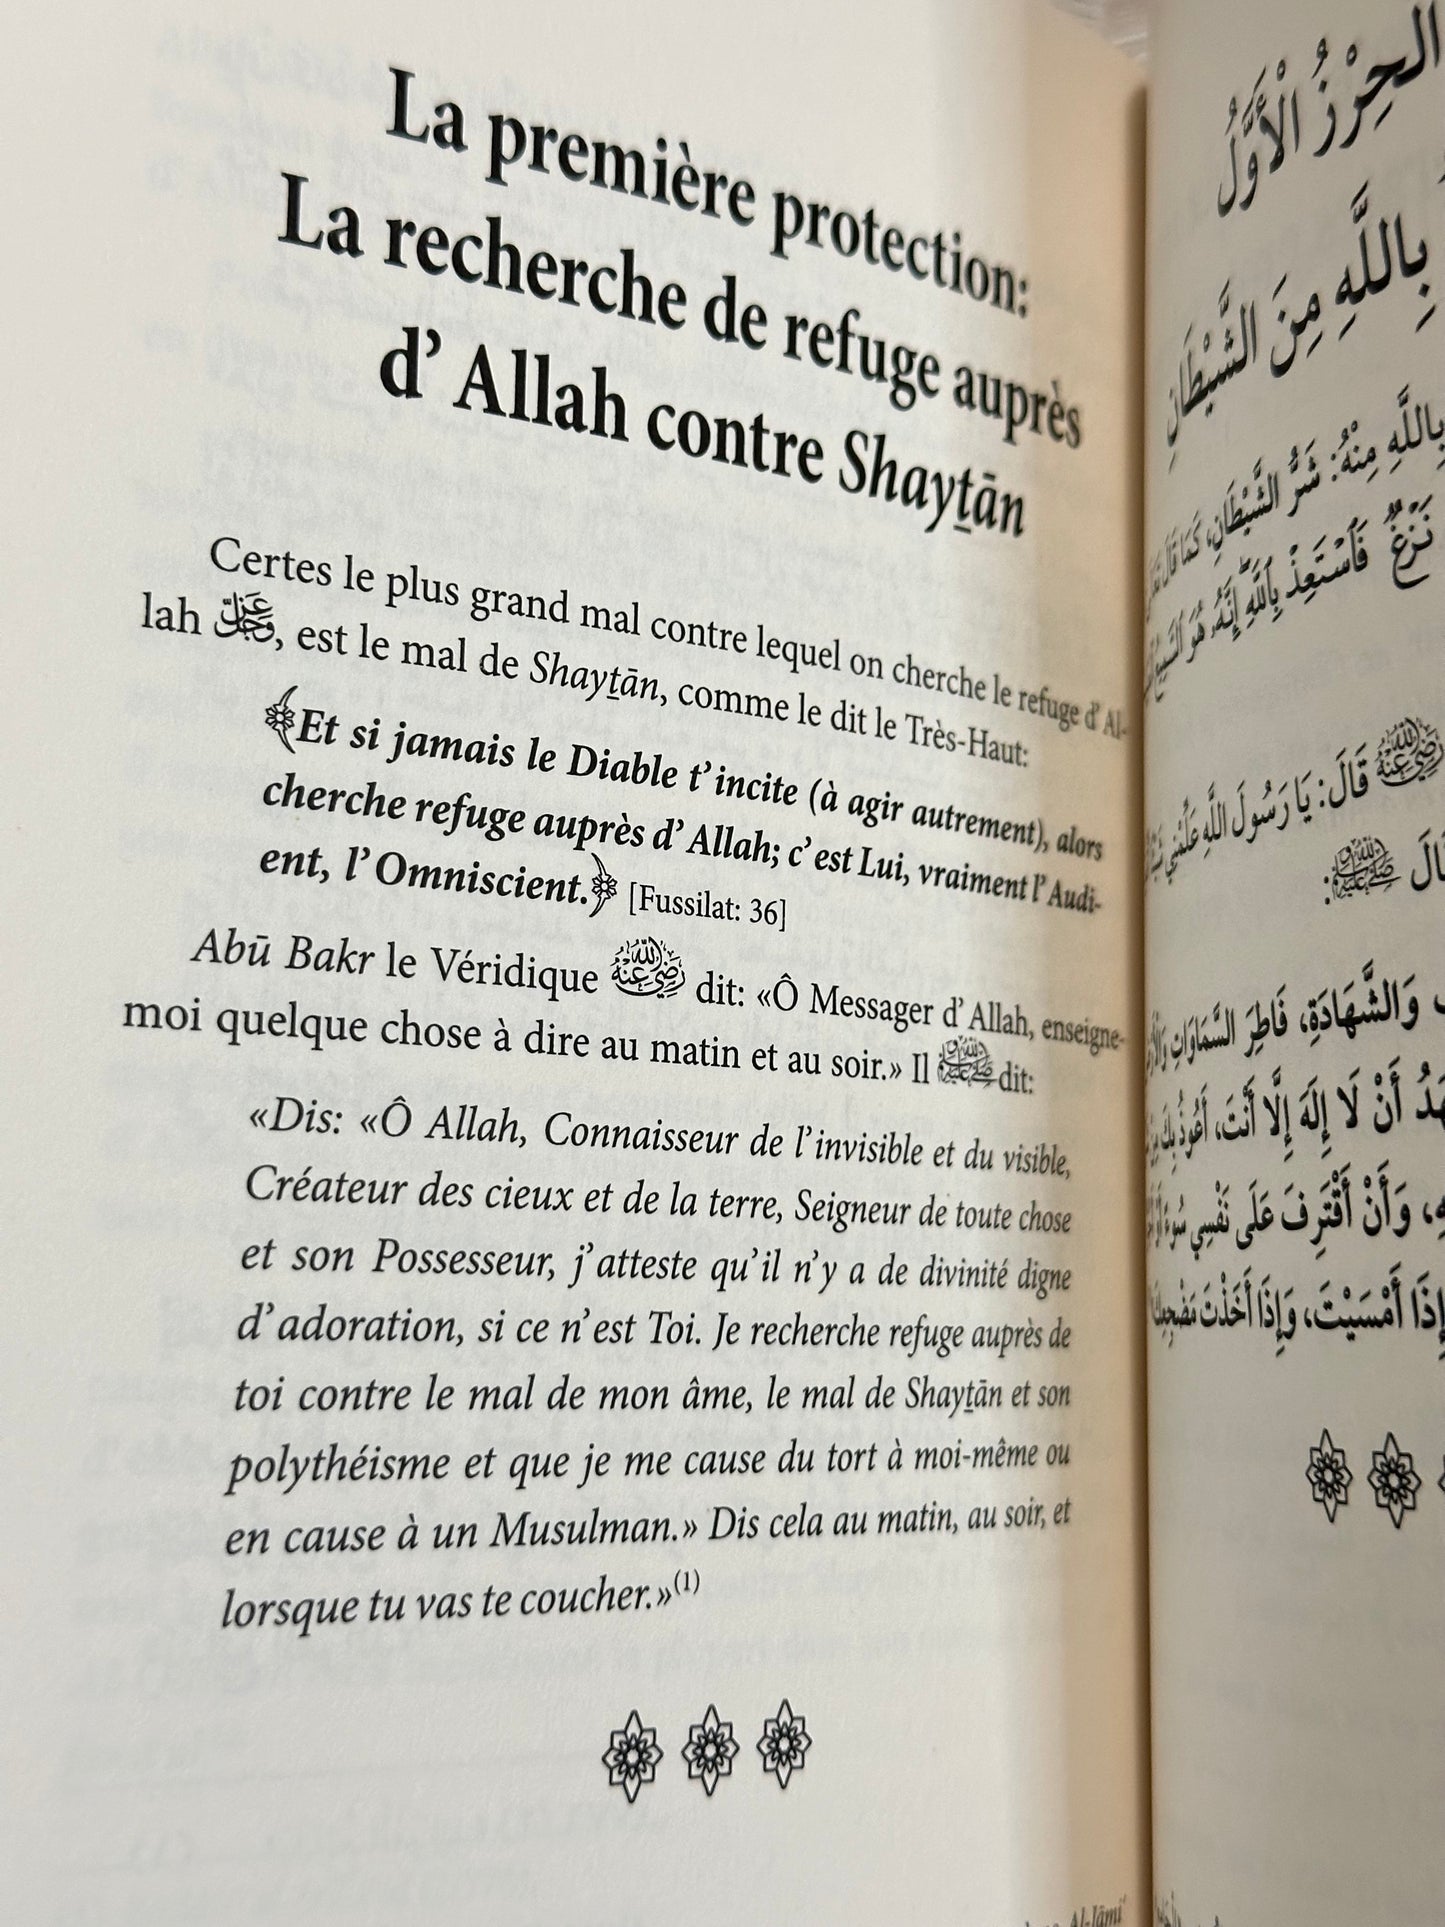 La première protection:
La recherche de refuge auprès
d’ Allah contre Shayṯān
Certes le plus grand mal contre lequel on cherche le refuge d’ Al-
lah عَزَّ وَجَلَّ, est le mal de Shayṯān, comme le dit le Très-Haut:
﴾Et si jamais le Diable t’incite (à agir autrement), alors
cherche refuge auprès d’ Allah; c’est Lui, vraiment l’Audi-
ent, l’Omniscient.﴿ [Fussilat: 36]
Abū Bakr le Véridique رَضِيَ اللَّهُ عَنْهُ dit: «Ô Messager d’ Allah, enseigne-
moi quelque chose à dire au matin et au soir.» Il ﷺ dit:
«Dis: «Ô Allah, Connaisseur de l’invisible et du visible,
Créateur des cieux et de la terre, Seigneur de toute chose
et son Possesseur, j’atteste qu’il n’y a de divinité digne
d’adoration, si ce n’est Toi. Je recherche refuge auprès de
toi contre le mal de mon âme, le mal de Shayṯān et son
polythéisme et que je me cause du tort à moi-même ou
en cause à un Musulman.» Dis cela au matin, au soir, et
lorsque tu vas te coucher.»(1)
Al-Jāmiʿ
الحِرْزُ الْأَوَّلُ
بِاللَّهِ مِنَ الشَّيْطَانِ
بِاللَّهِ مِنْهُ: شَرُّ الشَّيْطَانِ، كَمَا قَالَ
نَزْغٌ فَاسْتَعِذْ بِاللَّهِ إِنَّهُ هُوَ
رَضِيَ اللَّهُ عَنْهُ قَالَ: يَا رَسُولَ اللَّهِ عَلِّمْنِي
ﷺ:
وَالشَّهَادَةِ، فَاطِرَ السَّمَاوَاتِ
أَنْ لَا إِلَهَ إِلَّا أَنْتَ، أَعُوذُ بِكَ
وَأَنْ أَقْتَرِفَ عَلَى نَفْسِي سُوءًا
أَمْسَيْتَ، وَإِذَا أَخَذْتَ مَضْجِعَكَ